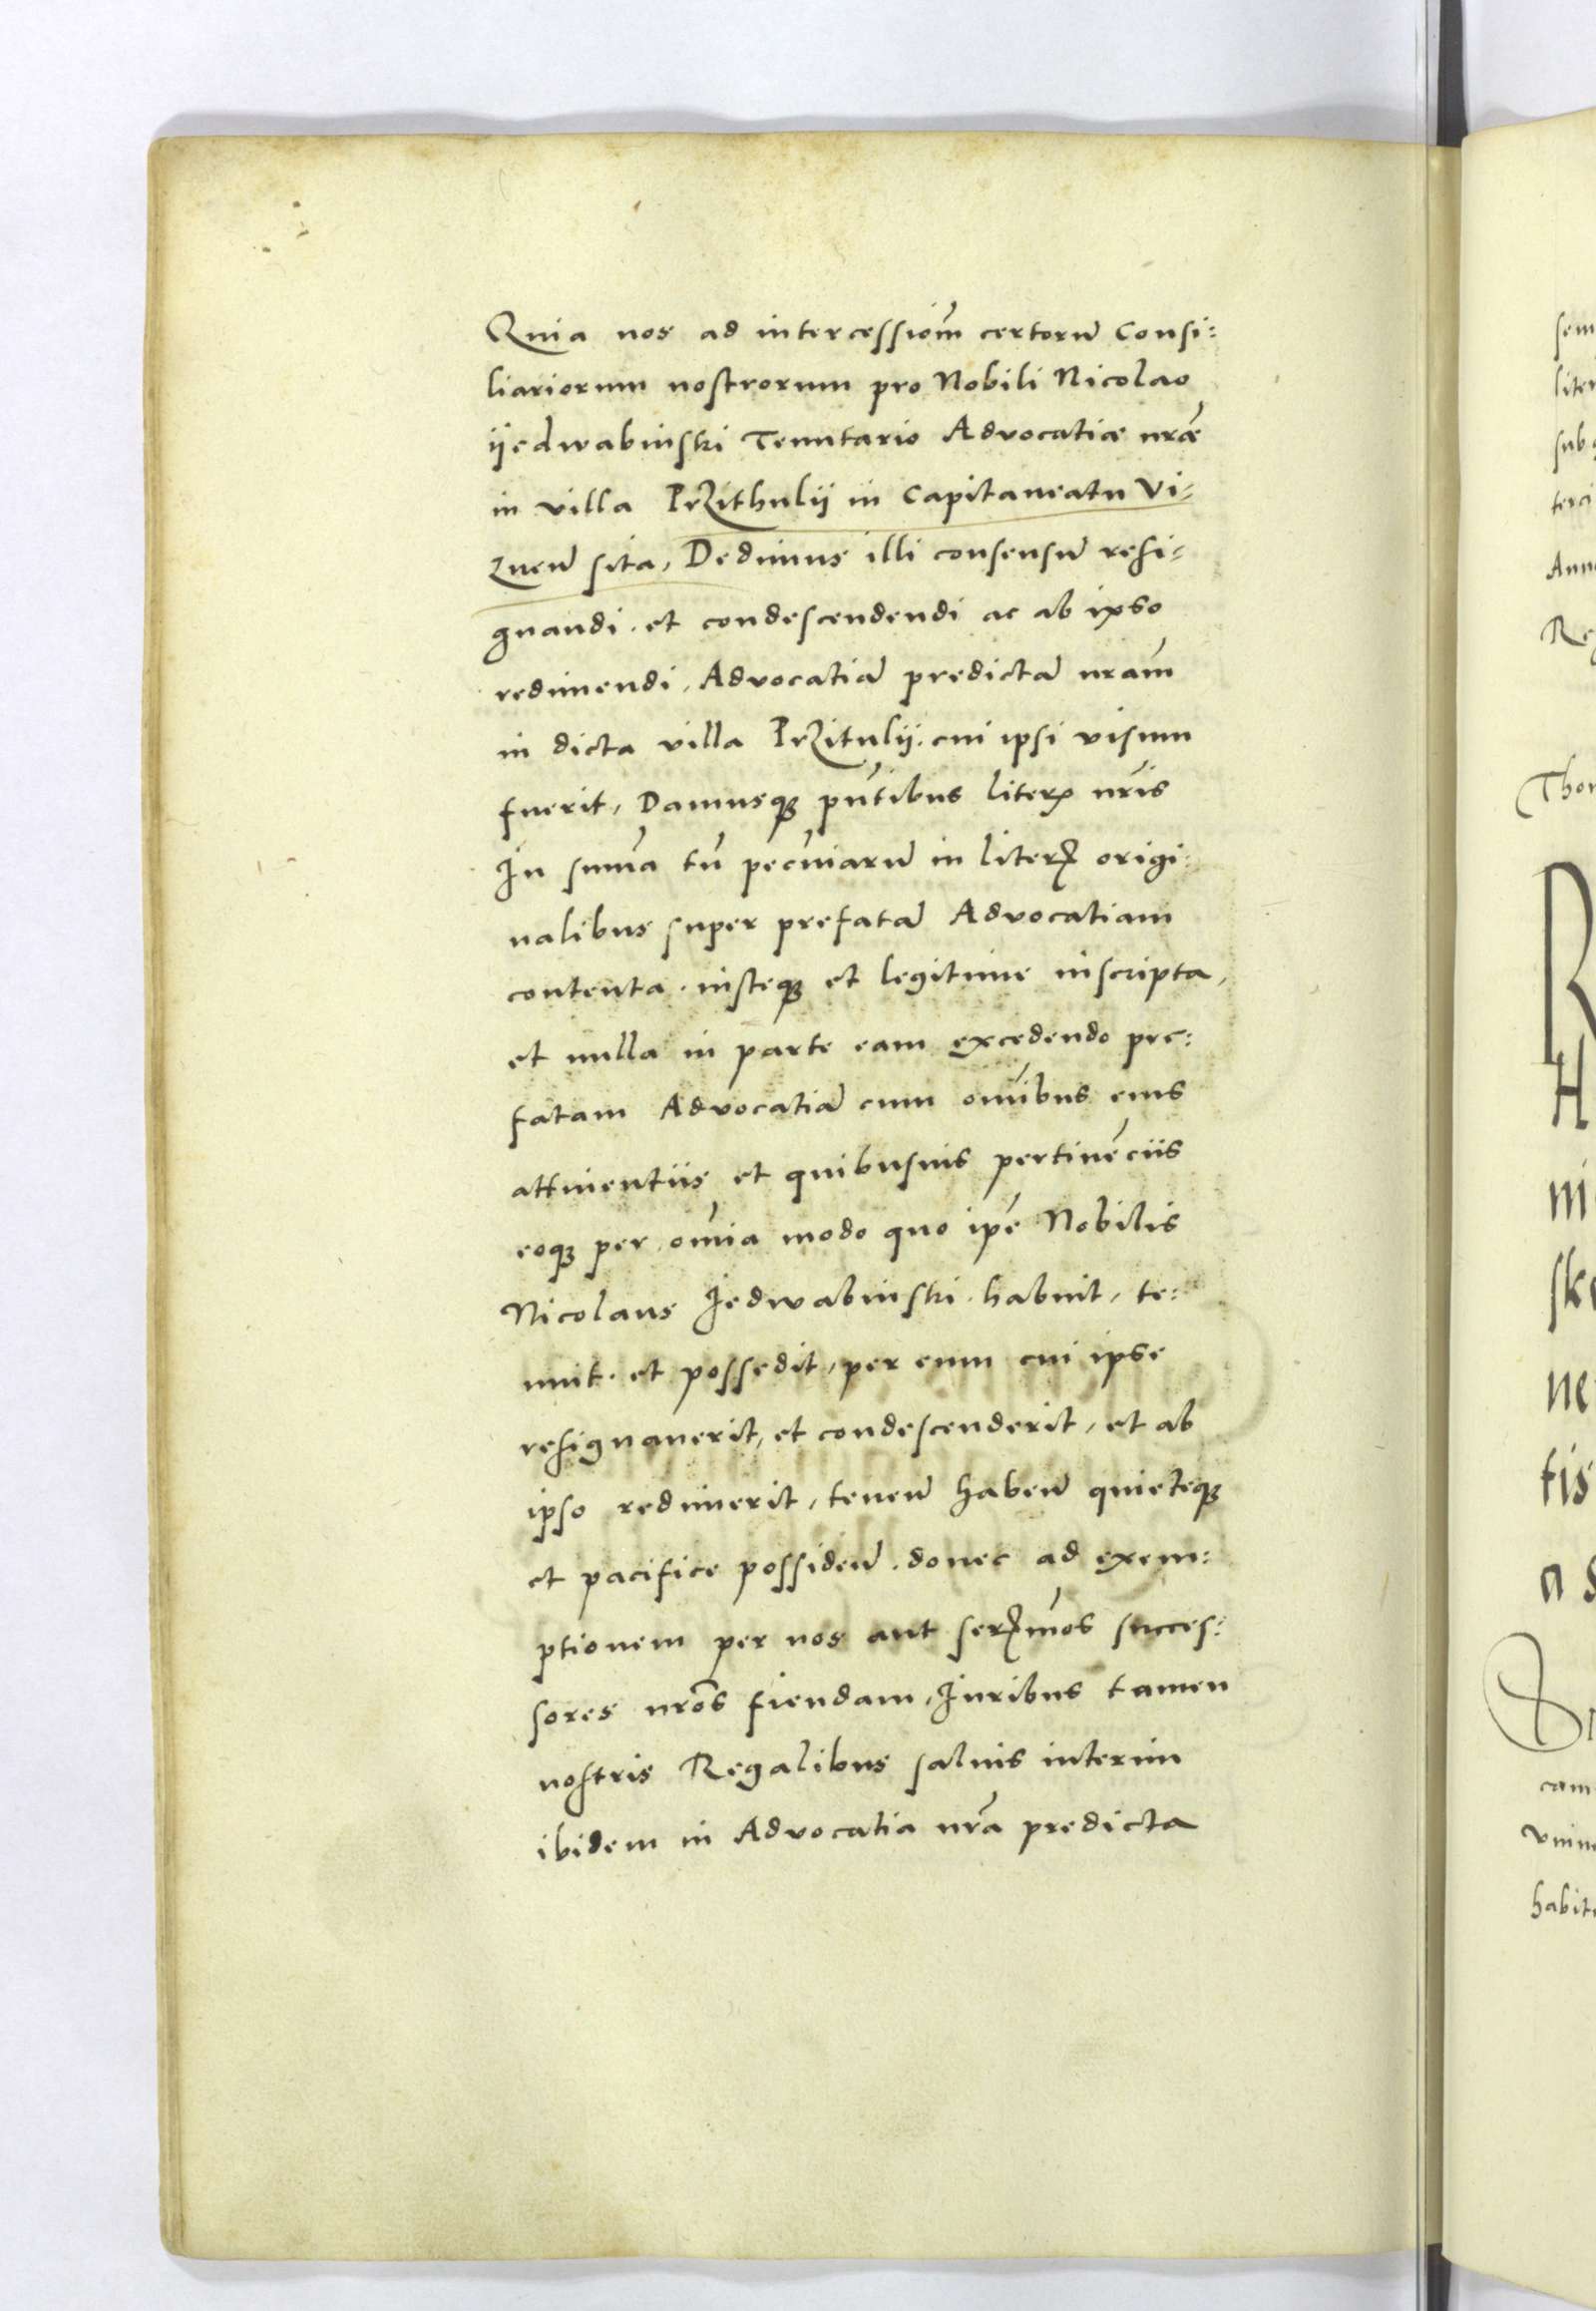 Quia nos ad intercessiom̃ certorũ Consi:
liariorum nostrorum pro Nobili Nicolao
iiedwabinski Tenutario Advocatiæ nr̃æ
in villa Przithulij in Capitaneatu Vi-
znen̄ sita, Dedimus illi consensũ resi-
gnandi. et condescendendi ac ab ipso
redimendi, Advocatiã predictã nram̃
in dicta villa Przitulij. cui ipsi visum
fuerit, Damusqꝫ pñtibus literꝭ nr̃is
In sum̃a tñ pecũiarũ in literꝭ origi:
nalibus super prefatã Advocatiam
contenta. iusteqꝫ et legitime inscripta,
et nulla in parte eam excedendo pre:
fatam Advocatiã cum om̃ibus eius
attinentiis et quibusuis pertinẽciis
eoqꝫ per om̃ia modo quo ip̃e Nobilis
Nicolaus Jedwabinski. habuit, te:
nuit. et possedit, per eum cui ipse
resignauerit, et condescenderit, et ab
ipso redimerit, tenen̄ haben̄ quieteqꝫ
et pacifice possiden̄. donec ad exem:
ptionem per nos aut serꝭm̃os succes:
sores nrõs fiendam, Juribus tamen
nostris Regalibus saluis interim
ibidem in Advocatia nr̃a predicta
sem
liter
sub
terci
Ann
Re
Thon
R
H
ni
ske
ne
tis
a
cam
habit